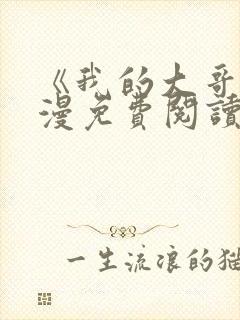 《我的大哥
漫免費閱讀
一生流浪的猫